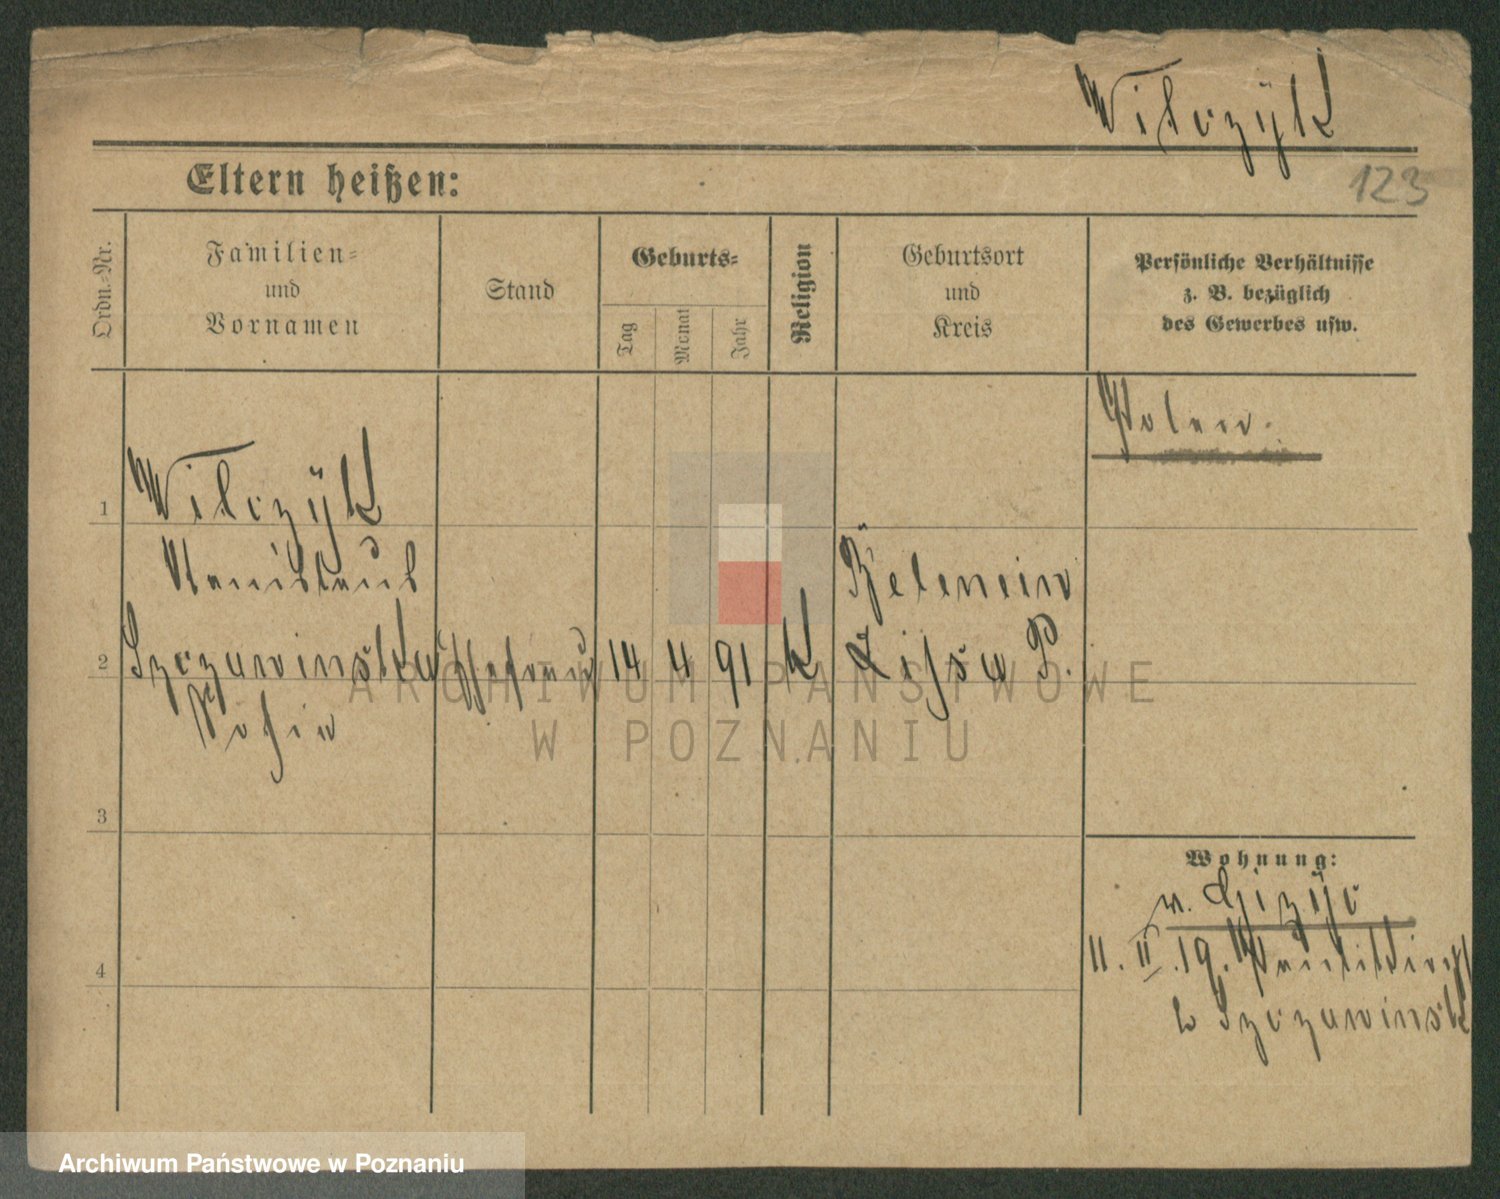 Wilczÿk
123
Eltern heißen:
Ordn.-Nr.
Familien-
und
Vornamen
Stand
Geburts-
Tag
Monat
Jahr
Religion
Geburtsort
und
Kreis
Persönliche Verhältnisse
z. B. bezüglich
des Gewerbes usw.
Polen.
1
Wilczÿk
2
Szczawinska Ehefrau 14 4 91 K Lissa P.
Sofie
3
4
Wohnung:
11. II. 19.
b Szczawinsk
ARCHIWUM PAŃSTWOWE
W POZNANIU
Archiwum Państwowe w Poznaniu